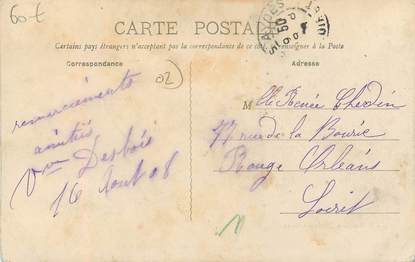 60-t
CARTE POSTALE
Certains pays étrangers n'acceptant pas la correspondance de ce côté, se renseigner à la Poste
Correspondance
Adresse
02
remerciements
amitiés
Vve Desbois
16 Aout 08
Mlle Renée Chedin
77 rue de la Bourie
Rouge Orléans
Loiret